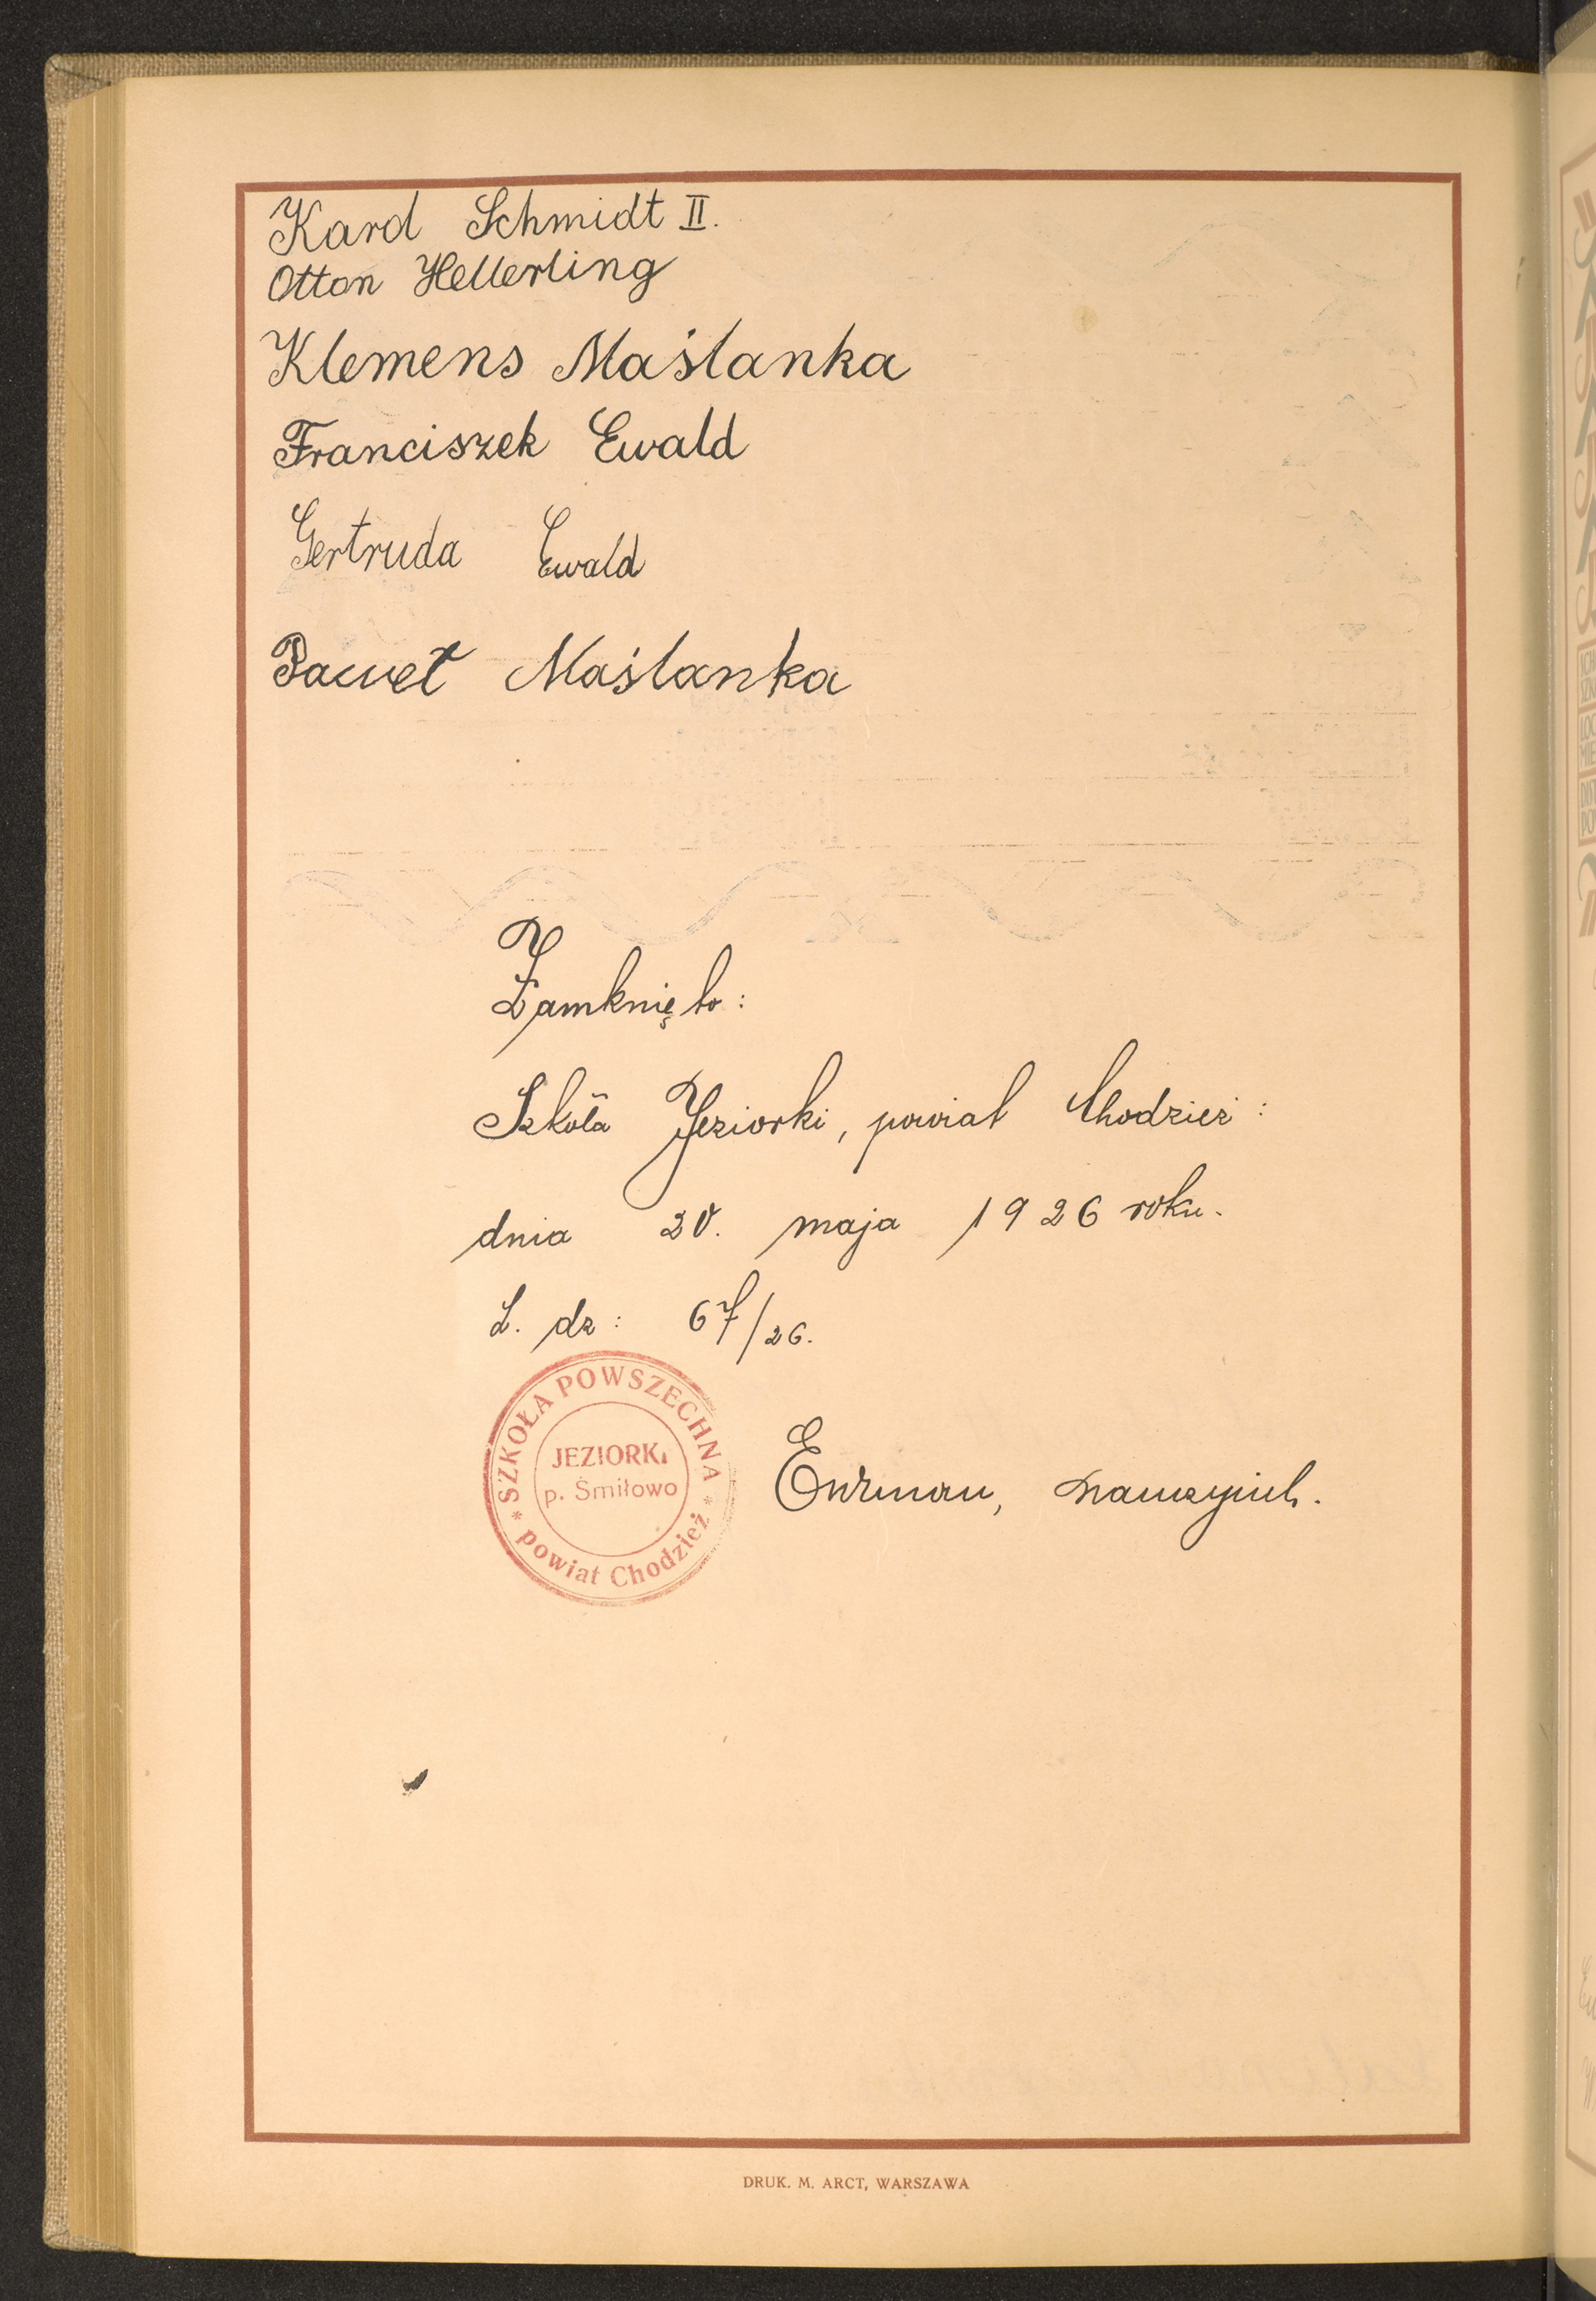 Karol Schmidt II.
Otton Hellerling
Klemens Maślanka
Franciszek Ewald
Gertruda Ewald
Paweł Maślanka
Zamknięto:
Szkoła Jeziorki, powiat Chodzież:
dnia 20. maja 1926 roku.
L. dz: 67/26.
SZKOŁA POWSZECHNA
JEZIORKI
p. Śmiłowo
* powiat Chodzież *
nauczyciel.
DRUK. M. ARCT, WARSZAWA